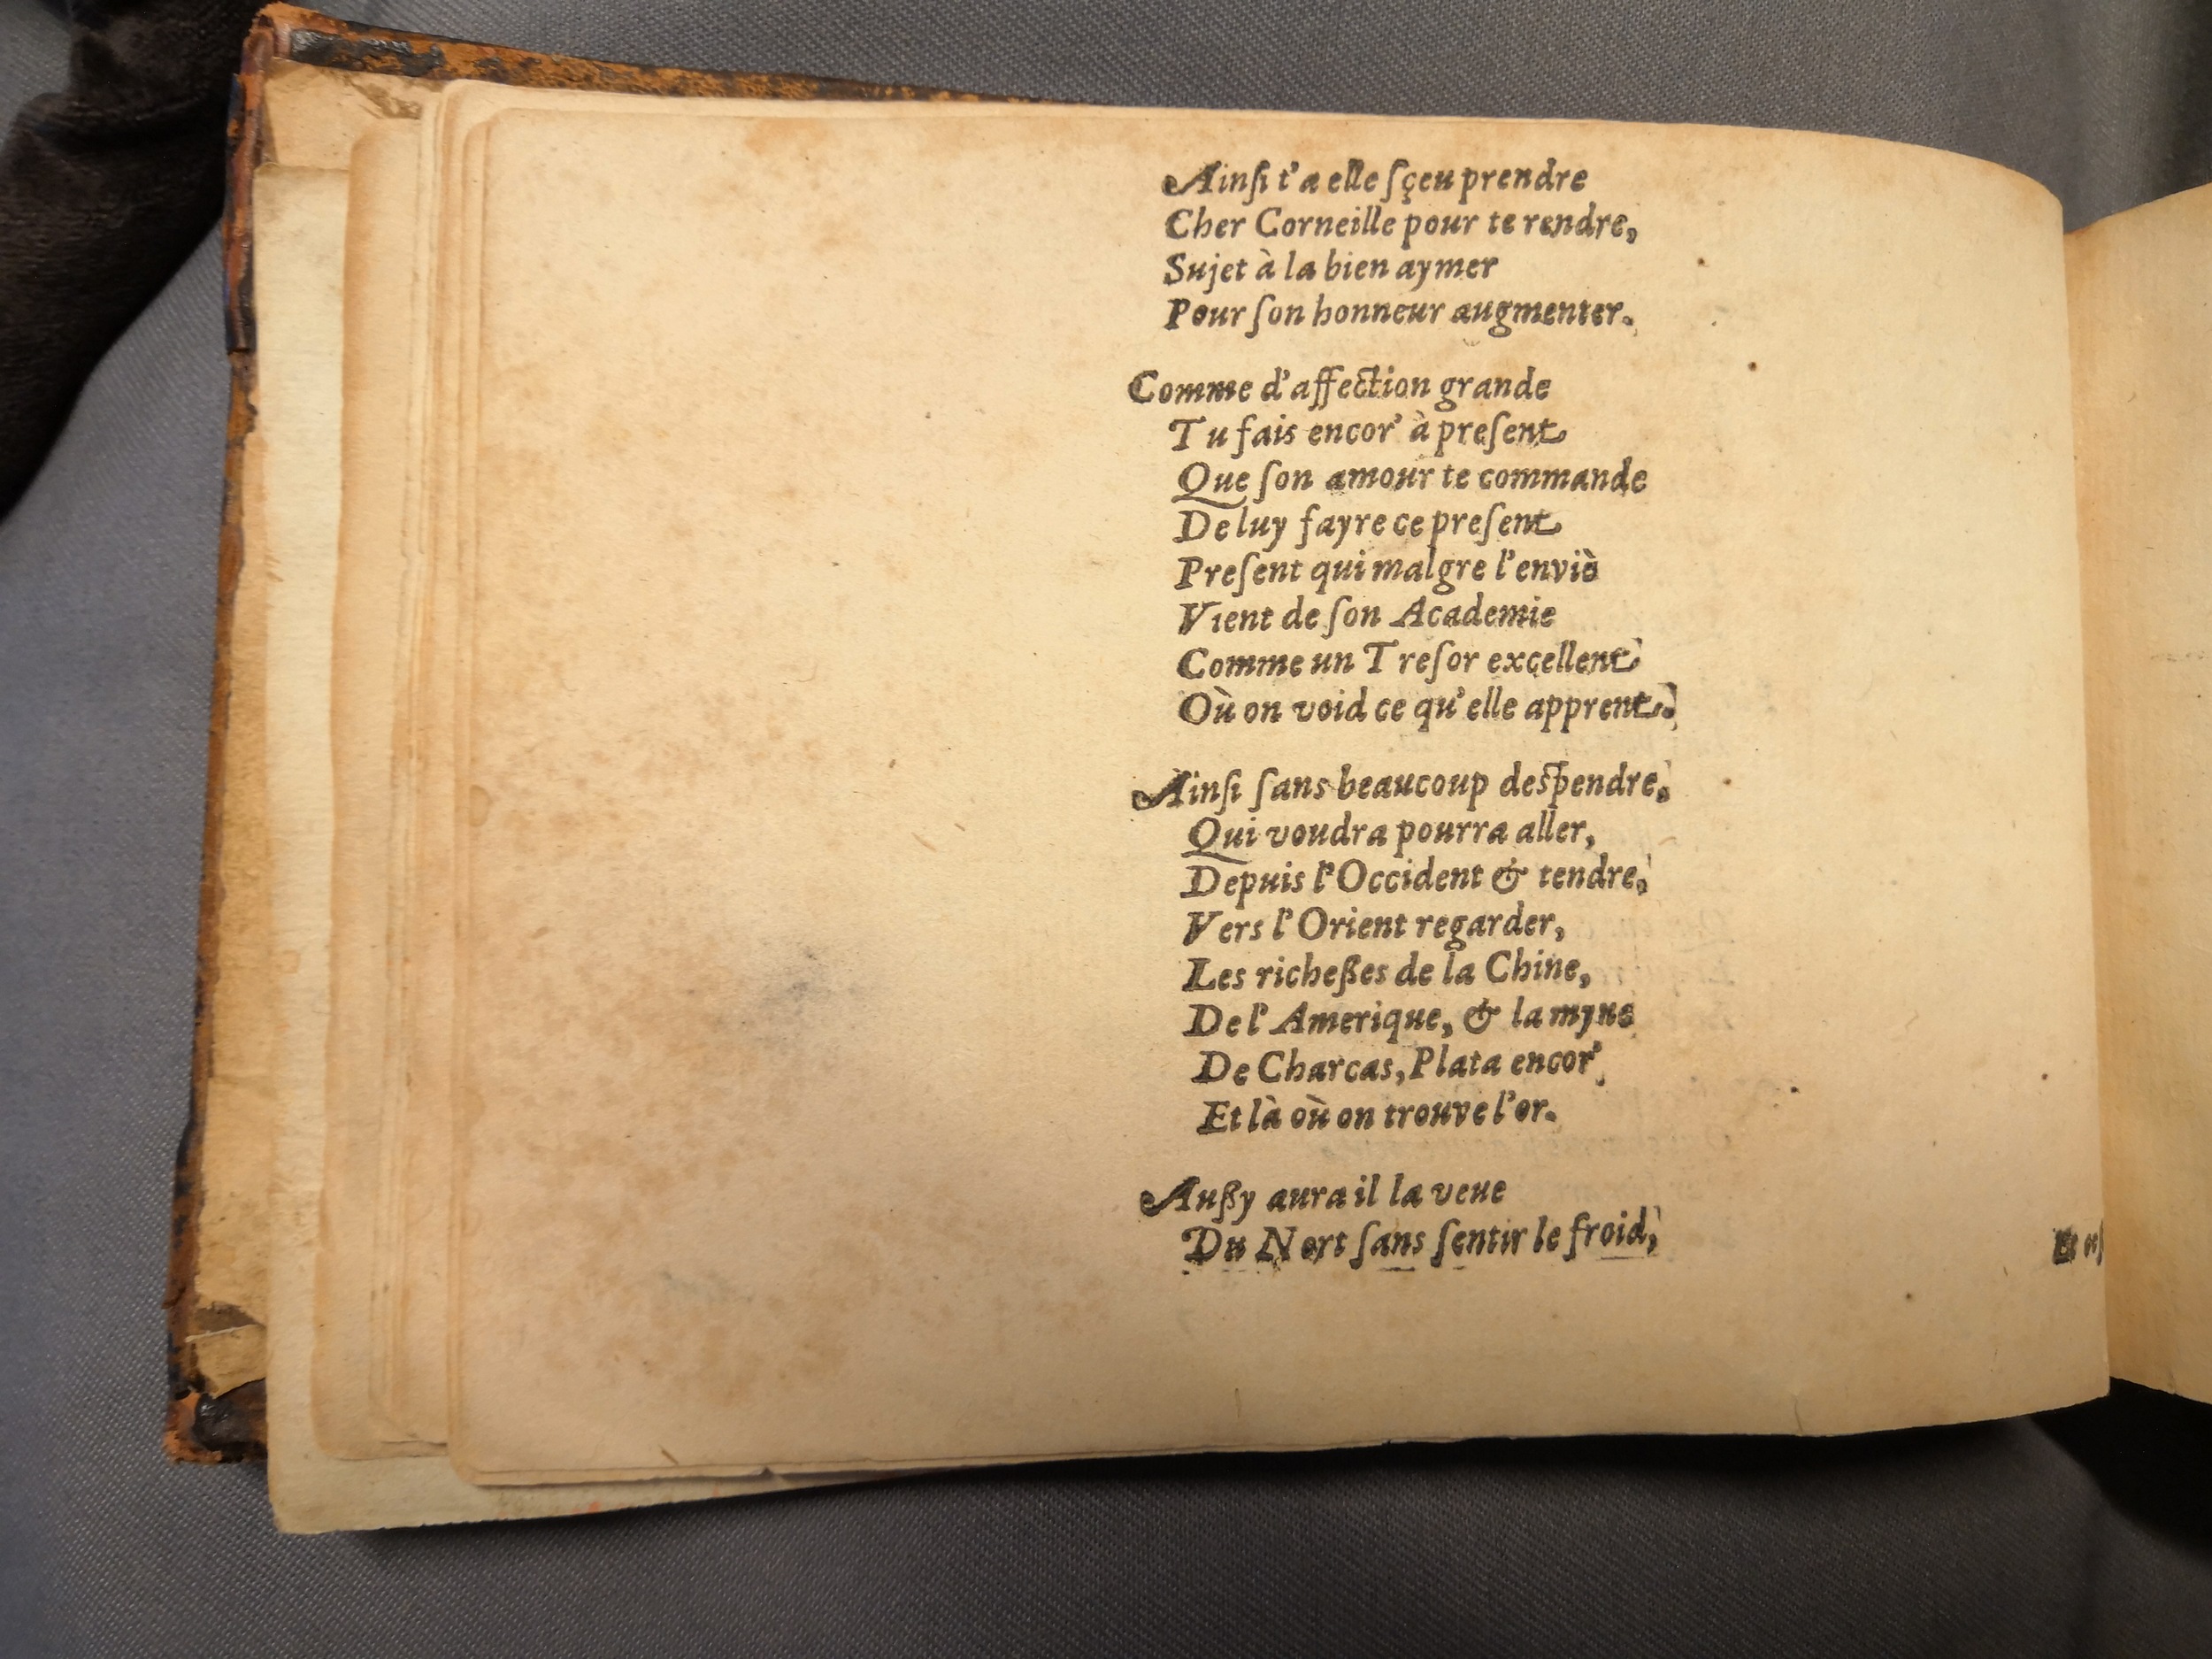 Ainſi t'a elle ſçeu prendre
Cher Corneille pour te rendre,
Sujet à la bien aymer
Pour ſon honneur augmenter.
Comme d'affection grande
Tu fais encor' à preſent
Que ſon amour te commande
De luy fayre ce preſent
Preſent qui malgre l'enviè
Vient de ſon Academie
Comme un Treſor excellent
Où on void ce qu'elle apprent.
Ainſi ſans beaucoup despendre.
Qui voudra pourra aller,
Depuis l'Occident & tendre,
Vers l'Orient regarder,
Les richeßes de la Chine,
De l'Amerique, & la myne
De Charcas, Plata encor'
Et là où on trouve l'or.
Außy aura il la veue
Du Nort ſans ſentir le froid,